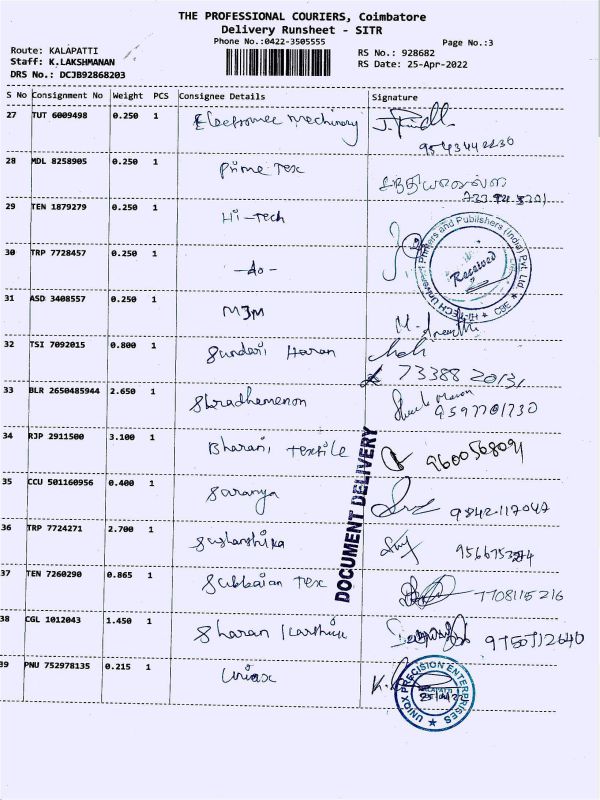 THE PROFESSIONAL COURIERS, Coimbatore
Delivery Runsheet - SITR
Phone No.:0422-3505555
Page No.:3
Route: KALAPATTI
RS No.: 928682
Staff: K.LAKSHMANAN
RS Date: 25-Apr-2022
DRS No.: DCJB92868203
S No Consignment No Weight PCS Consignee Details Signature
27 TUT 6009498 0.250 1 Electromec machinery
28 MDL 8258905 0.250 1 Prime Tex
29 TEN 1879279 0.250 1 Hi-Tech
30 TRP 7728457 0.250 1 -do-
HI-TECH Universal Printers and Publishers (India) Pvt. Ltd. CBE
Received
31 ASD 3408557 0.250 1 M3M
32 TSI 7092015 0.800 1 Sundari Haran
73388 20131
33 BLR 2650485944 2.650 1 Shradhamenon
9597701730
34 RJP 2911500 3.100 1 Bharani Textile
9600568091
35 CCU 501160956 0.400 1 Saranya
9842117047
DOCUMENT DELIVERY
36 TRP 7724271 2.700 1
37 TEN 7260290 0.865 1 Subbaian Tex
7708115216
38 CGL 1012043 1.450 1 Sharan Karthik
9750712640
39 PNU 752978135 0.215 1 Uniqx
UNIQX PRECISION ENTERPRISES
KALAPATTI